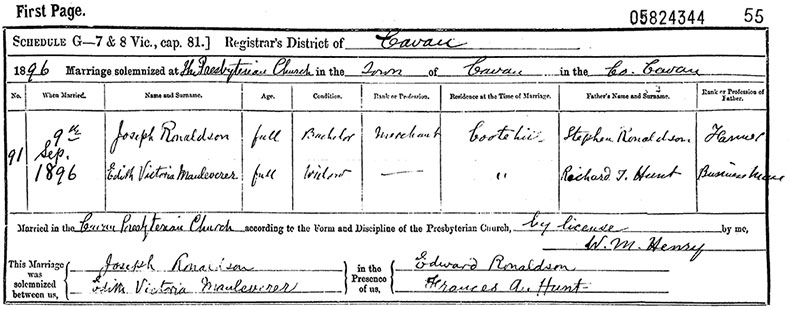 First Page. 05824344 55
SCHEDULE G—7 & 8 Vic., cap. 81.] Registrar's District of Cavan
1896 Marriage solemnized at The Presbyterian Church in the Town of Cavan in the Co. Cavan
No. When Married. Name and Surname. Age. Condition. Rank or Profession. Residence at the Time of Marriage. Father's Name and Surname. Rank or Profession of Father.
91 9th Sep. 1896 Joseph Ronaldson full Bachelor Merchant Cootehill Stephen Ronaldson Farmer
Edith Victoria Mauleverer full Widow — " Richard T. Hunt Business Man
Married in the Cavan Presbyterian Church according to the Form and Discipline of the Presbyterian Church, by license by me,
W. M. Henry
This Marriage was solemnized between us, { Joseph Ronaldson
Edith Victoria Mauleverer } in the Presence of us, { Edward Ronaldson
Frances A. Hunt }